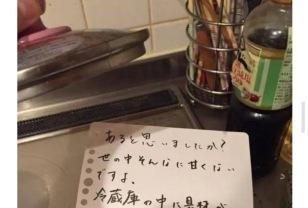 あると思いましたか?
世の中そんなに甘くない
ですよ。
冷蔵庫の中に具材が